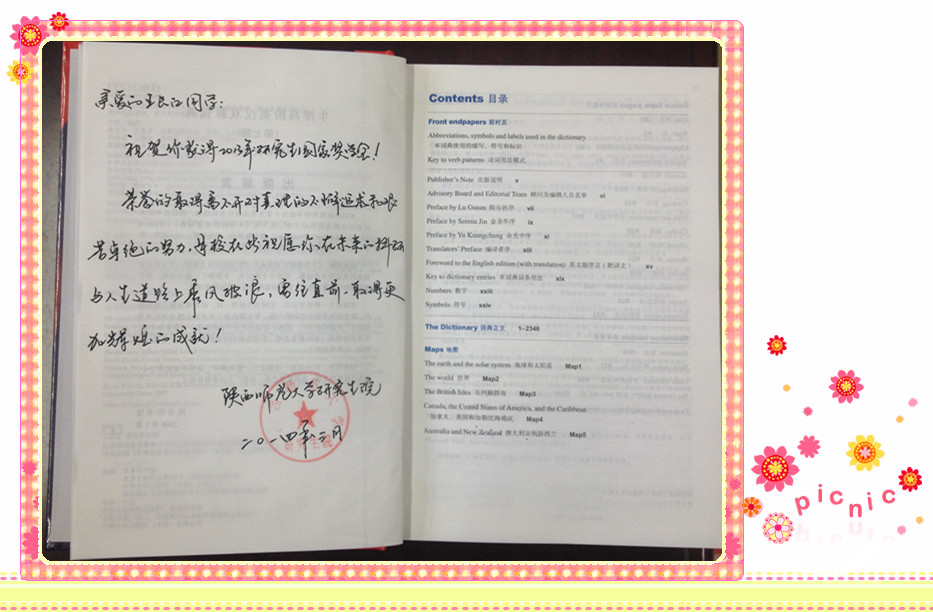 亲爱的王长江同学:
祝贺你获得2013年研究生国家奖学金!
荣誉的取得离不开对真理的不懈追求和艰
苦卓绝的努力,母校在此祝愿你在未来的科研
与人生道路上乘风破浪,勇往直前,取得更
加辉煌的成就!
陕西师范大学研究生院
二〇一四年三月
Contents 目录
Front endpapers 前衬页
Abbreviations, symbols and labels used in the dictionary
本词典使用的缩写、符号和标识
Key to verb patterns 动词用法模式
Publisher's Note 出版说明 v
Advisory Board and Editorial Team 顾问及编辑人员名单 vi
Preface by Lu Gusun 陆谷孙序 vii
Preface by Serena Jin 金圣华序 ix
Preface by Yu Kuangchung 余光中序 xi
Translators' Preface 编译者序 xiii
Foreword to the English edition (with translation) 英文版序言(附译文) xv
Key to dictionary entries 本词典词条用法 xix
Numbers 数字 xxiii
Symbols 符号 xxiv
The Dictionary 词典正文 1-2346
Maps 地图
The earth and the solar system 地球和太阳系 Map1
The world 世界 Map2
The British Isles 不列颠群岛 Map3
Canada, the United States of America, and the Caribbean
加拿大、美国和加勒比海地区 Map4
Australia and New Zealand 澳大利亚和新西兰 Map5
picnic